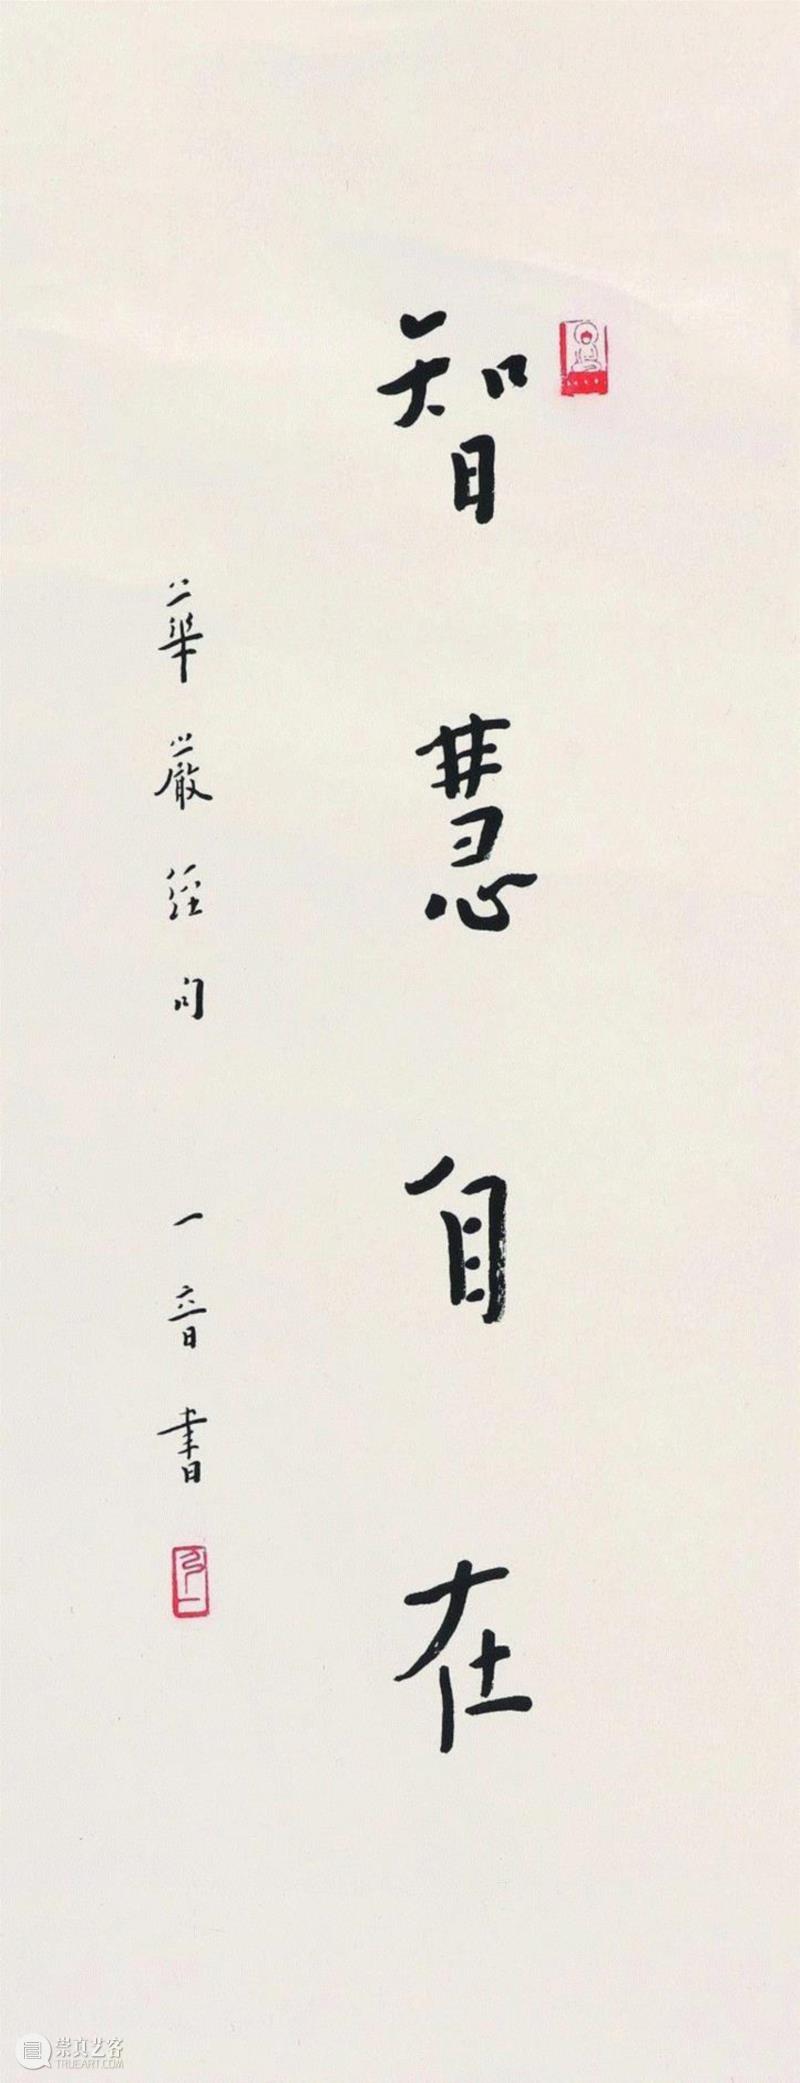 智慧自在
華嚴經句 一音書
崇真艺客
TRUEART.COM